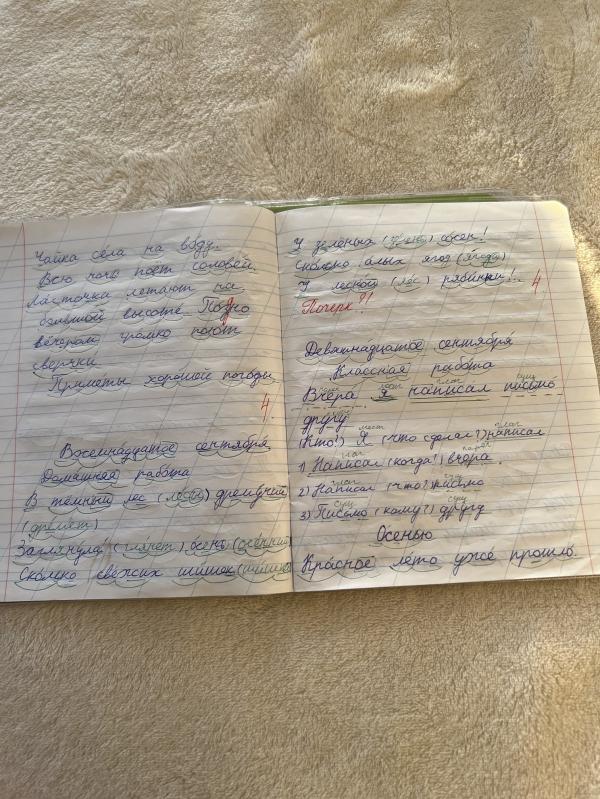 Чайка села на воду.
Всю ночь поёт соловей.
Ласточки летают на
большой высоте. Поздно
вечером громко поют
сверчки
Приметы хорошей погоды.
4
Восемнадцатое сентября
Домашняя работа
В тёмный лес (леса) дремучий
(дремлет)
Заглянула (глянет) осень (осенний)
Сколько свежих шишек (шишка)
У зелёных осен!
Сколько алых ягод (ягода)
У лесной (лес) рябинки!..
4
Почерк?!
Девятнадцатое сентября
Классная работа
Вчера я написал письмо
другу
(Кто?) Я (что сделал?) написал
1) Написал (когда?) вчера.
2) Написал (что?) письмо
3) Письмо (кому?) другу
Осенью
Красное лето уже прошло.